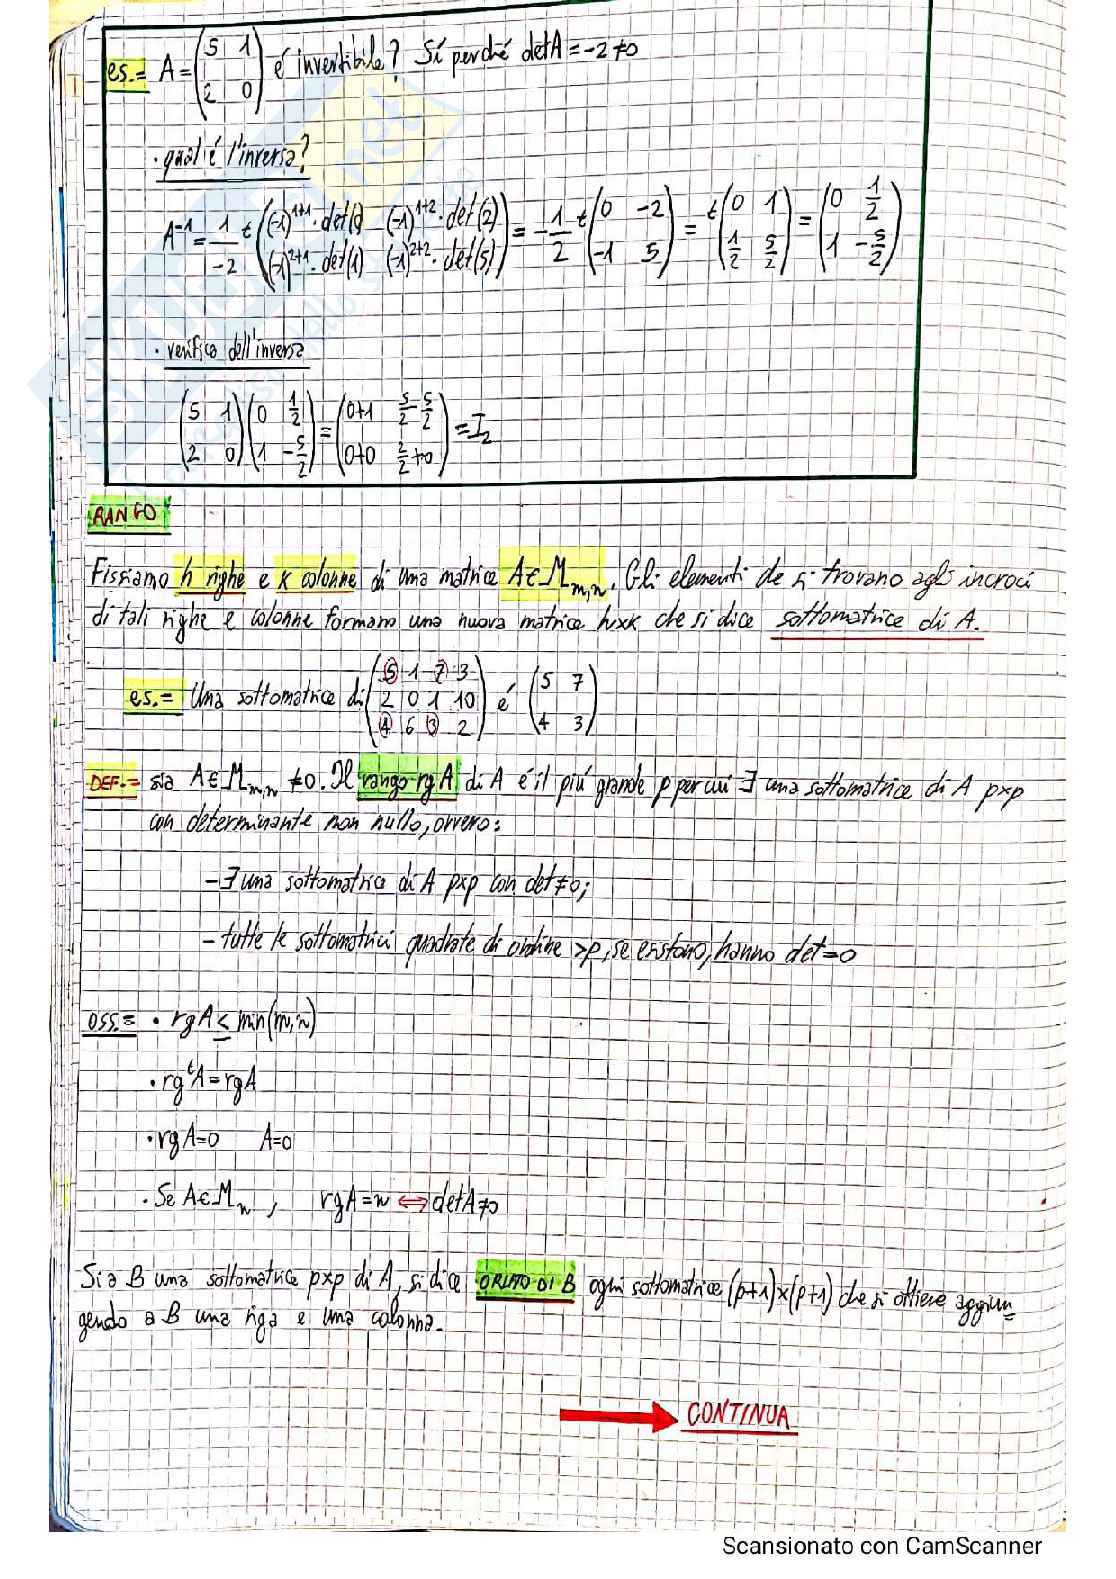 es.= A = (5 1 / 2 0) é invertibile? Sí perché detA = -2 ≠ 0
· qual é l'inversa?
A⁻¹ = 1/-2 t((-1)¹⁺¹·det(0) (-1)¹⁺²·det(2) / (-1)²⁺¹·det(1) (-1)²⁺²·det(5)) = -1/2 t(0 -2 / -1 5) = t(0 1 / 1/2 5/2) = (0 1/2 / 1 -5/2)
· verifica dell'inversa
(5 1 / 2 0)(0 1/2 / 1 -5/2) = (0+1 5/2-5/2 / 0+0 2/2+0) = I₂
RANGO
Fissiamo h righe e K colonne di una matrice A∈M m,n. Gli elementi che si trovano agli incroci
di tali righe e colonne formano una nuova matrice hxK che si dice sottomatrice di A.
es.= Una sottomatrice di (5 1 7 3 / 2 0 1 10 / 4 6 3 2) é (5 7 / 4 3)
DEF.= sia A∈M m,n ≠0. Il rango rgA di A é il piú grande p per cui ∃ una sottomatrice di A pxp
con determinante non nullo, ovvero:
- ∃ una sottomatrice di A pxp con det≠0;
- tutte le sottomatrici quadrate di ordine >p, se esistono, hanno det=0
oss.= · rgA ≤ min(m,n)
· rg ᵗA = rgA
· rgA=0 A=0
· Se A∈Mn, rgA=n ⇔ detA≠0
Sia B una sottomatrice pxp di A, si dice ORLATO DI B ogni sottomatrice (p+1)x(p+1) che si ottiene aggiun=
gendo a B una riga e una colonna.
CONTINUA
Scansionato con CamScanner